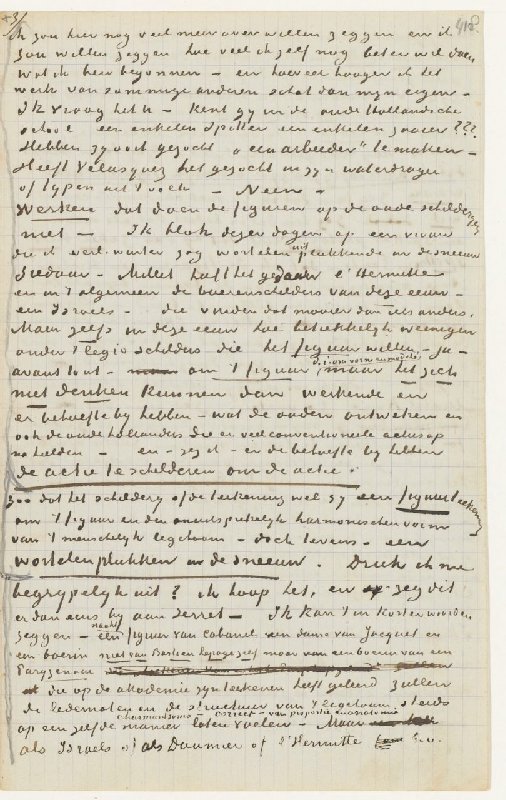 ik zou hier nog veel meer over willen zeggen en ik
zou willen zeggen hoe veel ik zelf nog beter wil doen
wat ik heb begonnen – en hoeveel hooger ik het
werk van sommige anderen schat dan mijn eigen –
Ik vraag het U – kent gy in de oude Hollandsche
school een enkelen spitter een enkelen zaaier???
Hebben zy ooit gezocht „een arbeider” te maken –
Heeft Velasquez het gezocht in zyn waterdrager
of typen uit 't volk – Neen –
Werken dat doen de figuren op de oude schilderyen
niet – Ik blok dezer dagen op een vrouw
die ik verl. winter zag wortelen uit plukkende in de sneeuw
Ziedaar – Millet heeft het gedaan l'Hermitte
en in 't algemeen de boerenschilders van deze eeuw –
een Israels – die vinden dat mooier dan iets anders.
Maar zelfs in deze eeuw hoe betrekkelijk weinigen
onder 't legio schilders die het figuur willen – ja –
avant tout – om 't figuur maar het zich
niet denken kunnen dan werkende en
er behoefte by hebben – wat de ouden ontweken en
ook de oude hollanders die er veel conventioneele acties op
na hielden – en – zeg ik – en de behoefte by hebben
de actie te schilderen om de actie.
Zoo dat het schildery of de teekening wel zy een figuurteekening
om 't figuur en den onuitsprekelyk harmonischen vorm
van 't menschelyk ligchaam – doch tevens – een
wortelen plukken in de sneeuw. Druk ik me
begrypelyk uit? ik hoop het, en zeg dit
er dan eens by aan Serret – Ik kan 't in korter woorden
zeggen – een naakt figuur van Cabanel een dame van Jacquet en
een boerin niet van Bastien Lepage zelf maar van een boerin van een
Paryzenaar
die op de akademie zyn teekenen heeft geleerd zullen
de ledematen en de structuur van 't ligchaam, steeds
op een zelfde manier laten voelen – Maar
charmant soms correct – van proportie en anatomie
als Israels of als Daumier of l'Hermitte